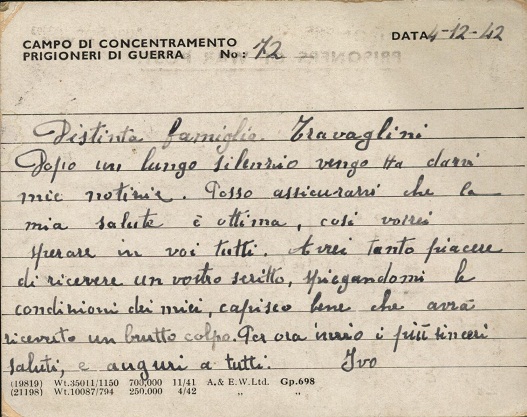 CAMPO DI CONCENTRAMENTO
PRIGIONERI DI GUERRA No: 72
DATA 4-12-42
Distinta famiglia Travaglini
Dopo un lungo silenzio vengo a darvi
mie notizie. Posso assicurarvi che la
mia salute è ottima, così vorrei
sperare in voi tutti. Avrei tanto piacere
di ricevere un vostro scritto, spiegandomi le
condizioni dei miei, capisco bene che avrà
ricevuto un brutto colpo. Per ora invio i più sinceri
saluti, e auguri a tutti. Ivo
(19819) Wt.35011/1150 700,000 11/41 A. & E.W.Ltd. Gp.698
(21198) Wt.10087/794 250.000 4/42 " "